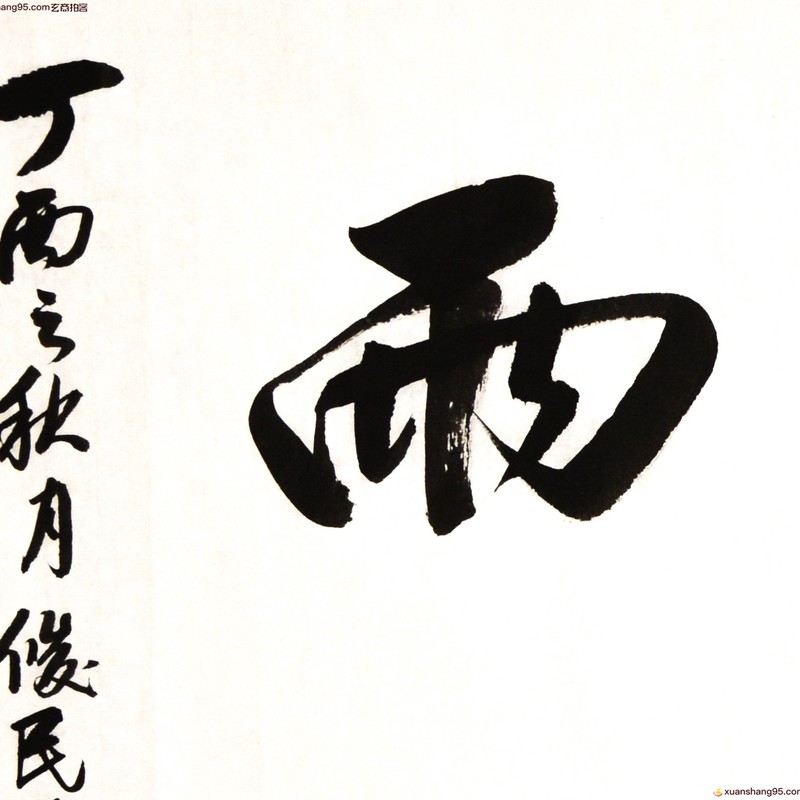 雨
丁酉之秋月俊民
hang95.com玄商拍客
xuanshang95.com